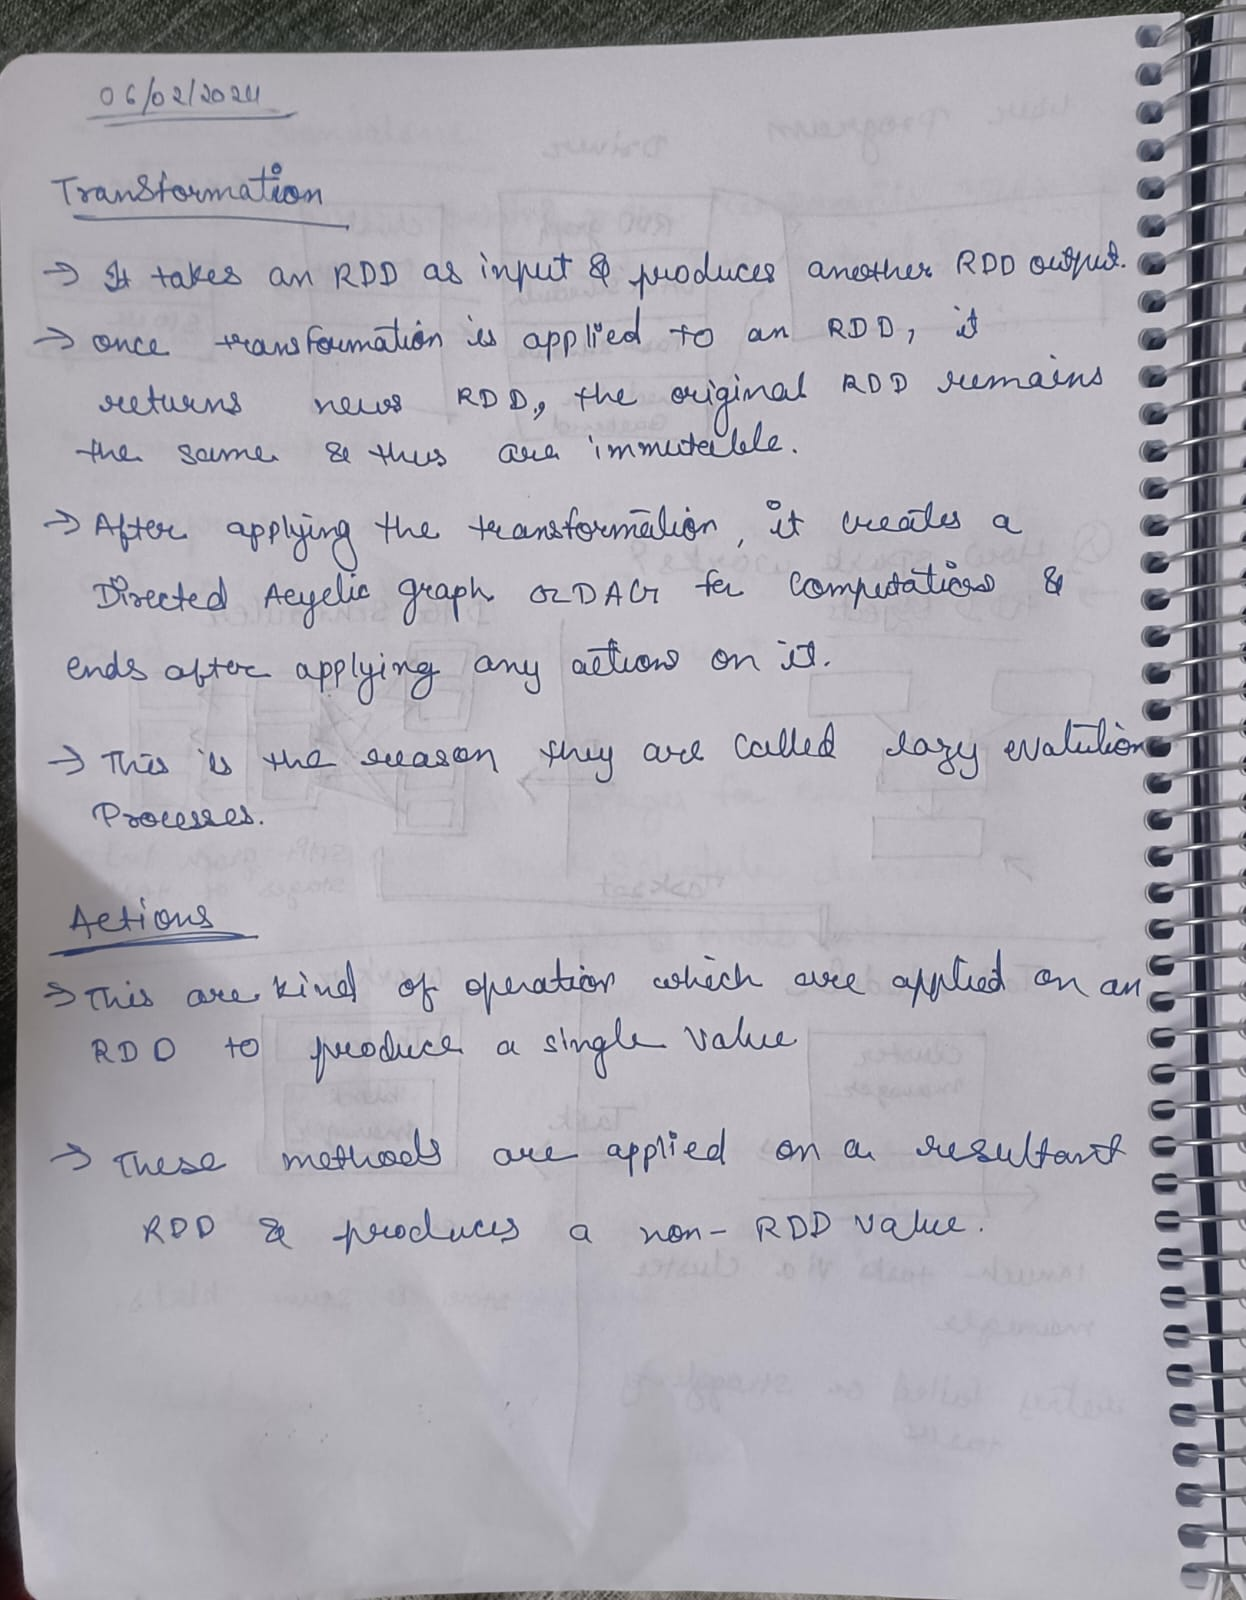 06/02/2024
Transformation
→ It takes an RDD as input & produces another RDD output.
→ once transformation is applied to an RDD, it
returns new RDD, the original RDD remains
the same & thus are immutable.
→ After applying the transformation, it creates a
Directed Acyclic graph or DAG for computation &
ends after applying any action on it.
→ This is the reason they are called lazy evalution
Processes.
Actions
→ This are kind of operation which are applied on an
RDD to produce a single value
→ These methods are applied on a resultant
RDD & produces a non-RDD value.